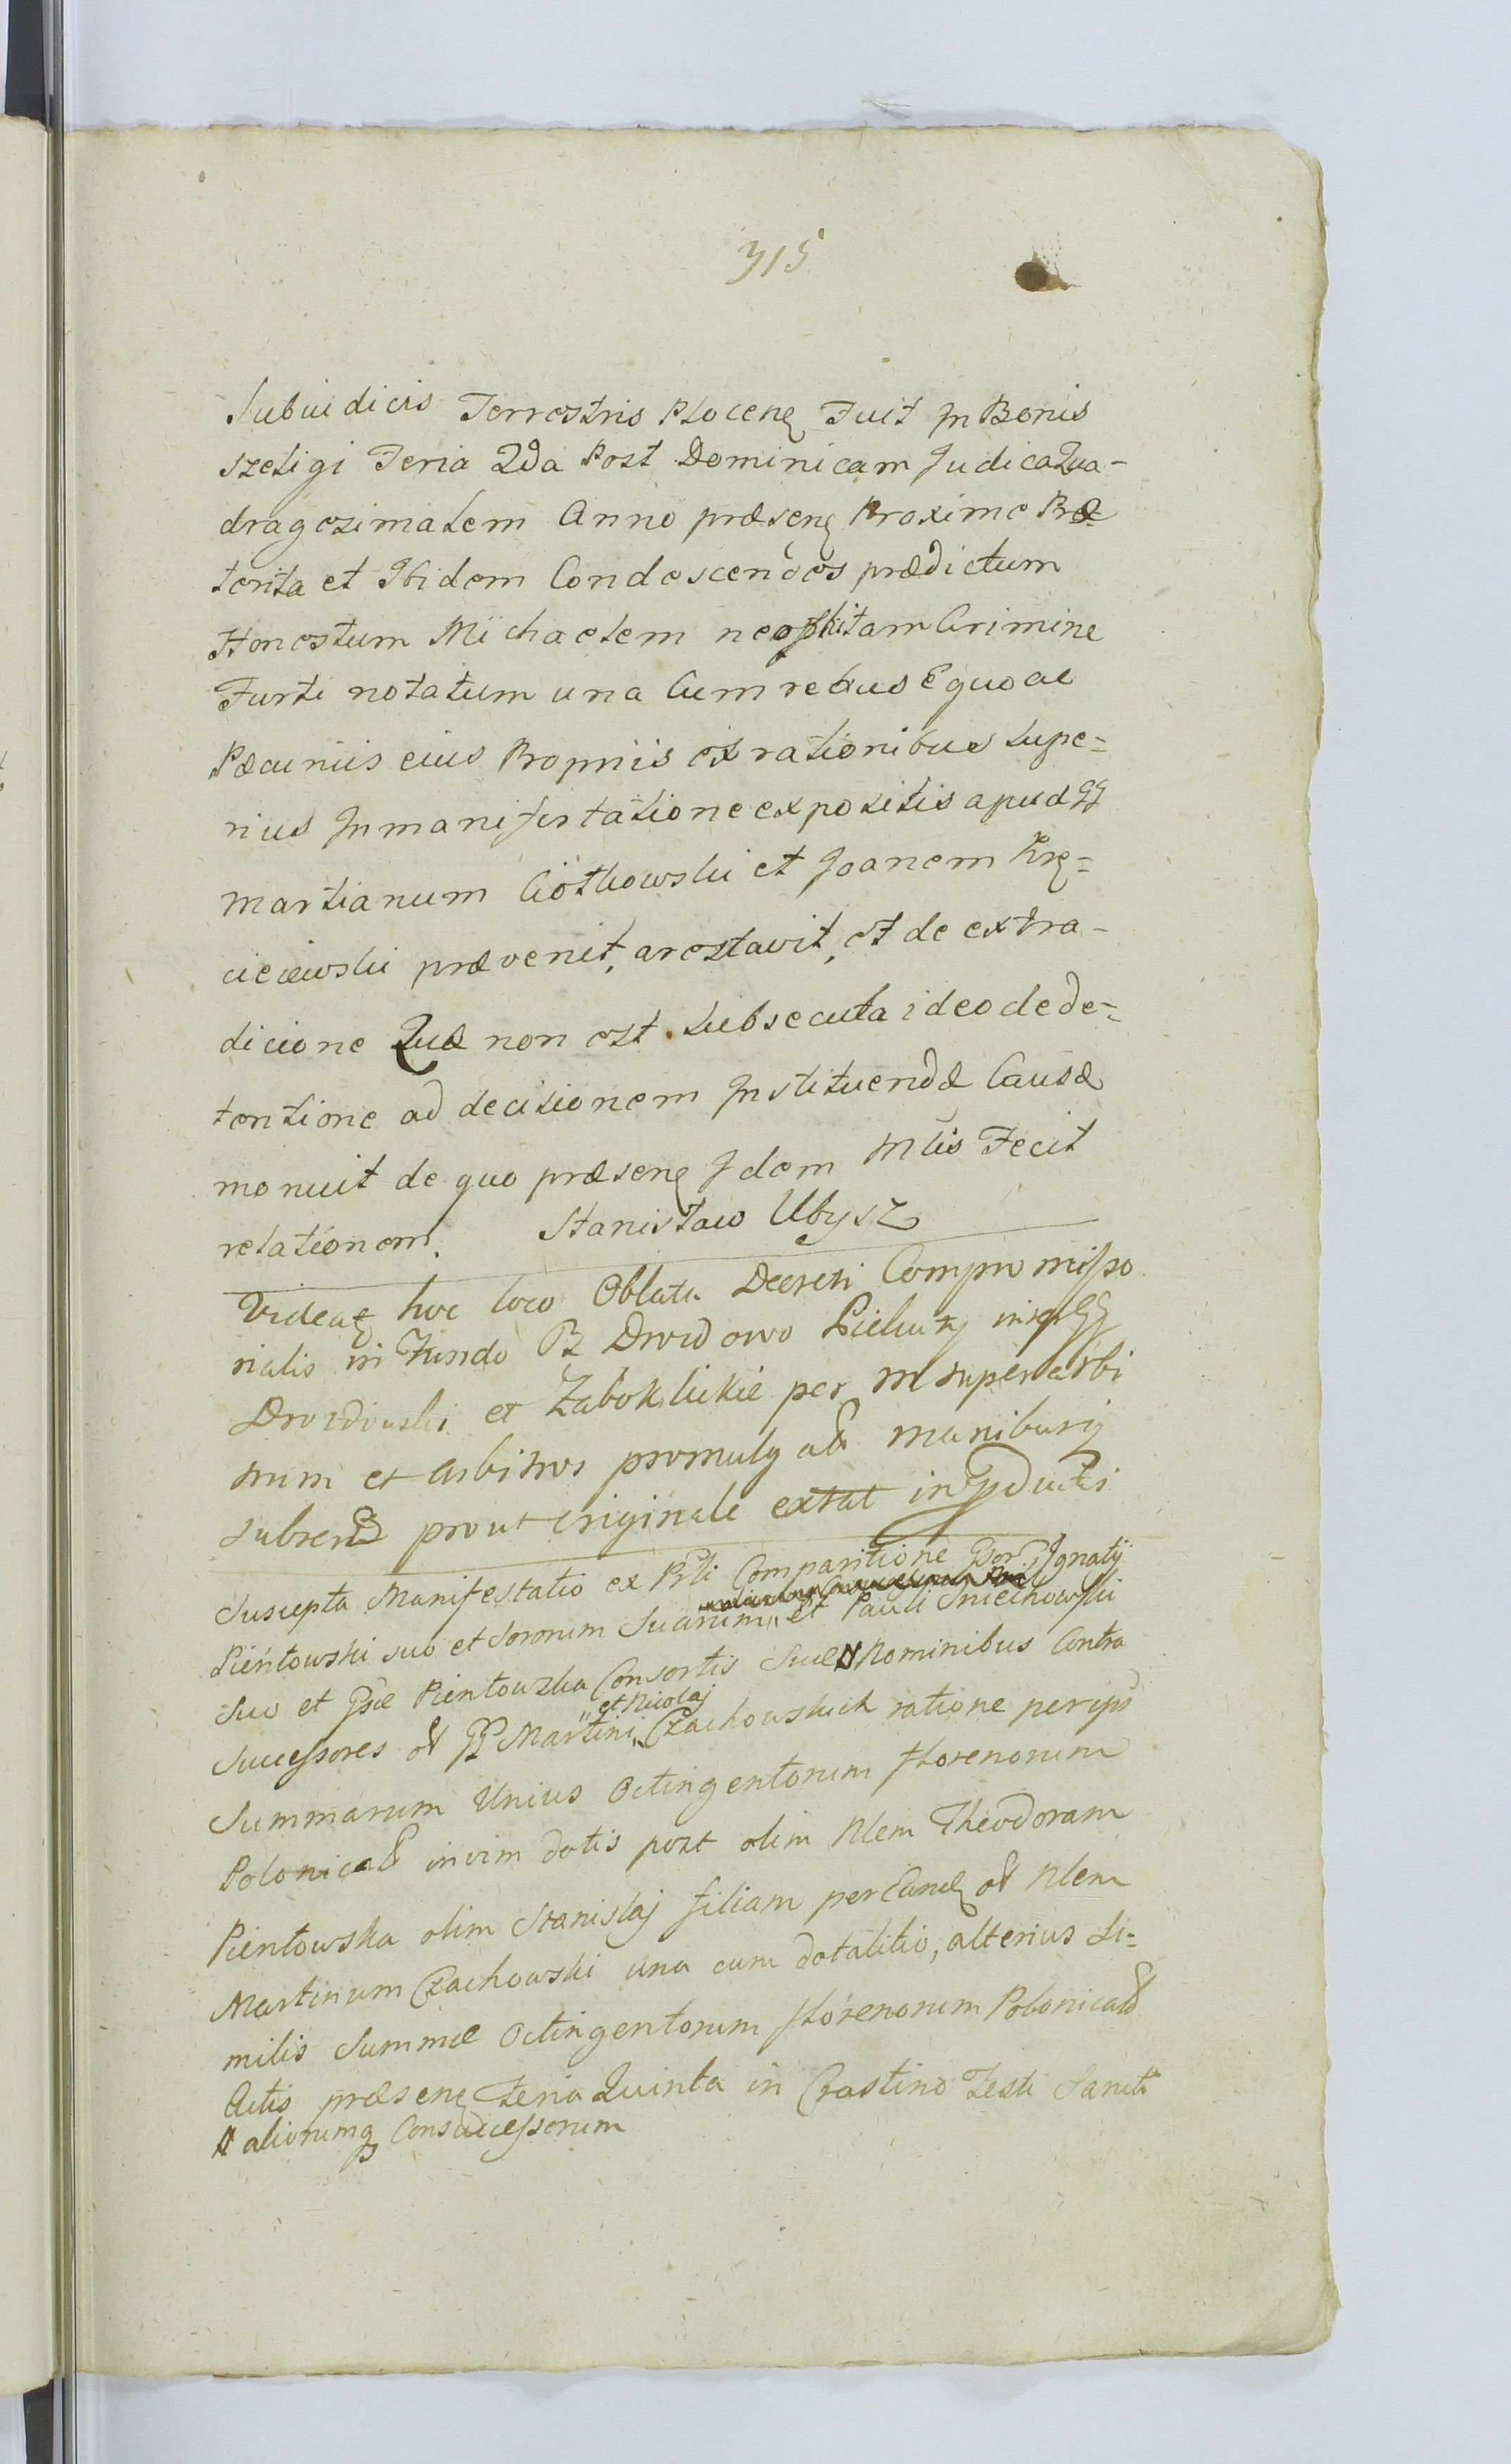 315
Subiudicis Terrestris Plocen Fuit In Bonis
Szeligi Feria 2da Post Dominicam Judica Qua-
dragesimalem Anno præsen Proxime Præ
terita et Ibidem Condescendes prædictum
Honestum Michaelem neofhitam Crimine
Furti notatum una Cum rebus Equo ac
Pæcuniis eius Propriis ex rationibus supe=
rius In manifestatione expositis apud GG
Martianum Ciółkowski et Joanem Krę=
cieiewski prævenit, arestavit, et de extra-
dicione Quæ non est subsecuta ideo de de=
tentione ad decisionem Instituendæ Causæ
monuit de quo præsen Idem Mlis Fecit
relationem. Stanisław Ubysz
Videat hoc loco Oblata Decreti Compromisso
rialis in Fundo B Drozdowo
Drozdowski et Zaboklickie per superarbi
trum et Arbitros promulgat manibusq
subscr prout originale extat
Suscepta Manifestatio ex Psli Comparitione Gsor Ignatij
Pientowski suo et Sororum Suarum, et Pauli Sniechowski
Suo et Gsæ Pientowska Consortis Suæ Nominibus Contra
et Nicolaj
Successores ol GG Martini Czachowskich ratione per ips
Summarum Unius Octingentorum florenorum
Polonical in vim dotis post olim Nlem Theodoram
Pientowska olim Stanislaj filiam per Eand ol Nlem
Martinum Czachowski una cum dotalitio, alterius Si=
milis Summæ Octingentorum florenorum Polonical
Actis præsen Feria Quinta in Crastino Festi Sancti
aliorumq Consuccessorum